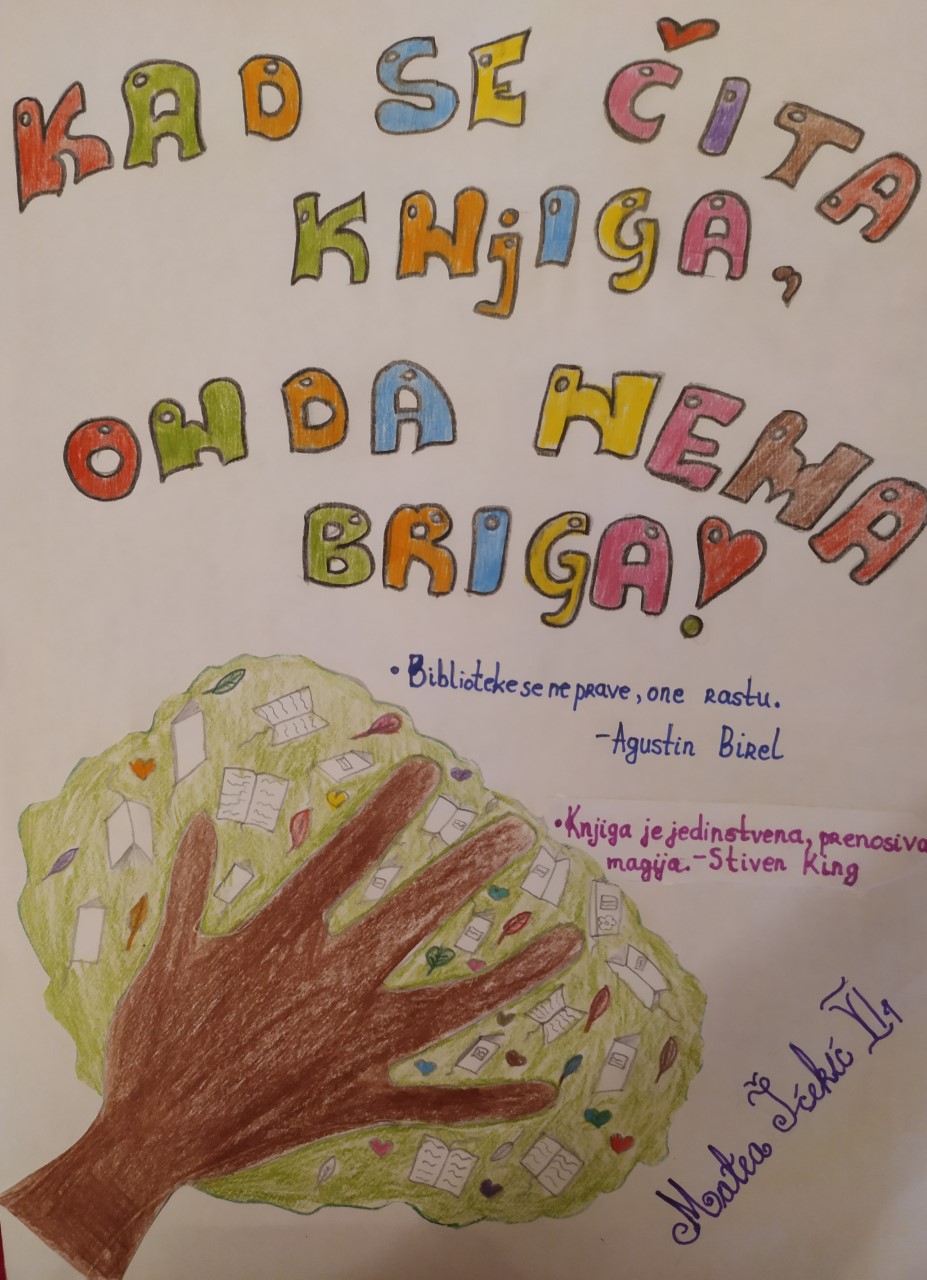 KAD SE ČITA
KNjIGA,
ONDA NEMA
BRIGA!
• Biblioteke se ne prave, one rastu.
-Agustin Birel
• Knjiga je jedinstvena, prenosiva
magija.-Stiven King
Matea VI1